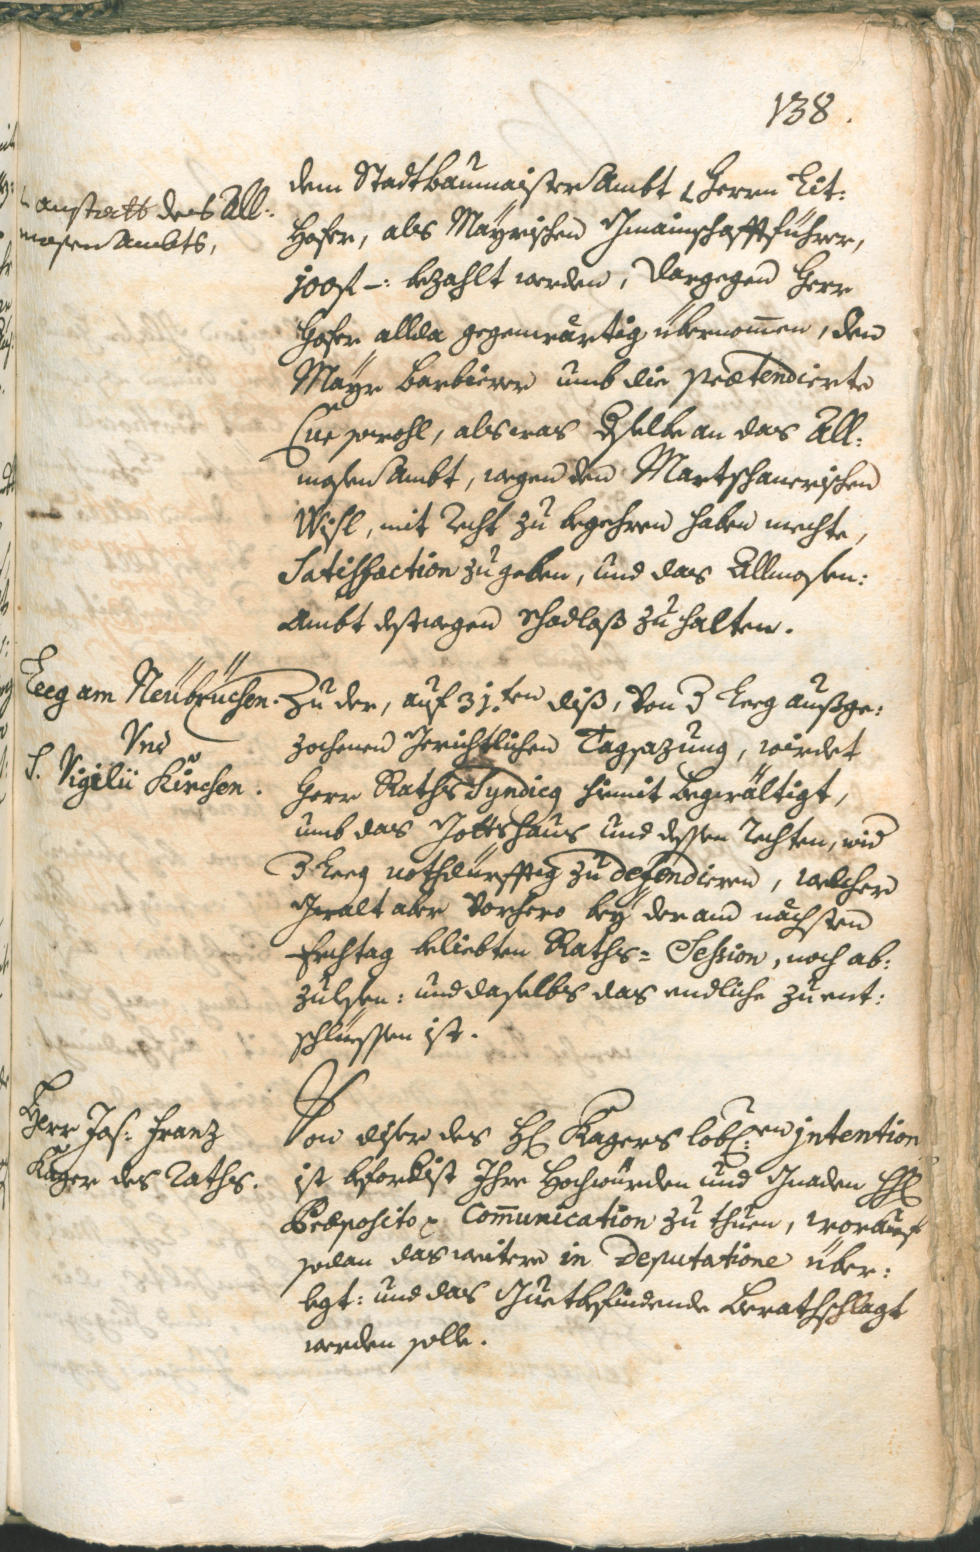 138.
dem StadtbaumaisterAmbt Herrn
anstatt des All:
mosenAmbts,
Hofer, als Mayrischen Gmainschafftführer,
100 f –: bezahlt werden, dargegen Herr
Hofer allda gegenwärtig übernom̅en, den
Mayr Barbierer umb die praetendierte
sowohl, als was dselbe an das All:
mosenAmbt, wegen den Martschanerischen
Wisl, mit Recht zu begehren haben mechte,
Satisfaction zu geben, und das Allmosen:
Ambt destwegen schadloß zu halten.
Eeeg am Neübrüchen.
Und
S. Vigilii Kirchen.
Zu der, auf 31.ten diß, von d Eeeg außge:
zochenen Gerichtlichen Tagsazung, würdet
Herr Raths Syndicq hiemit begwältigt,
umb das Gottshaus und dessen Rechten, wid
d Eeeg nothdürfftig zu defendieren, welcher
Gwalt aber vorhero bey der am nächsten
Erchtag beliebten Raths= Session, noch ab:
zulesen: und daselbs das endliche zu ent:
schlüessen ist.
Herr Jos: Franz
Kager des Raths.
Von diser des H: Kagers lobl:en intention
ist beforderist Ihro Hochwürden und Gnaden HH:
Praeposito Com̅unication zu thuen, worauf
sodan das weitere in Deputatione über:
legt: und das Guetbefindende berathschlagt
werden solle.